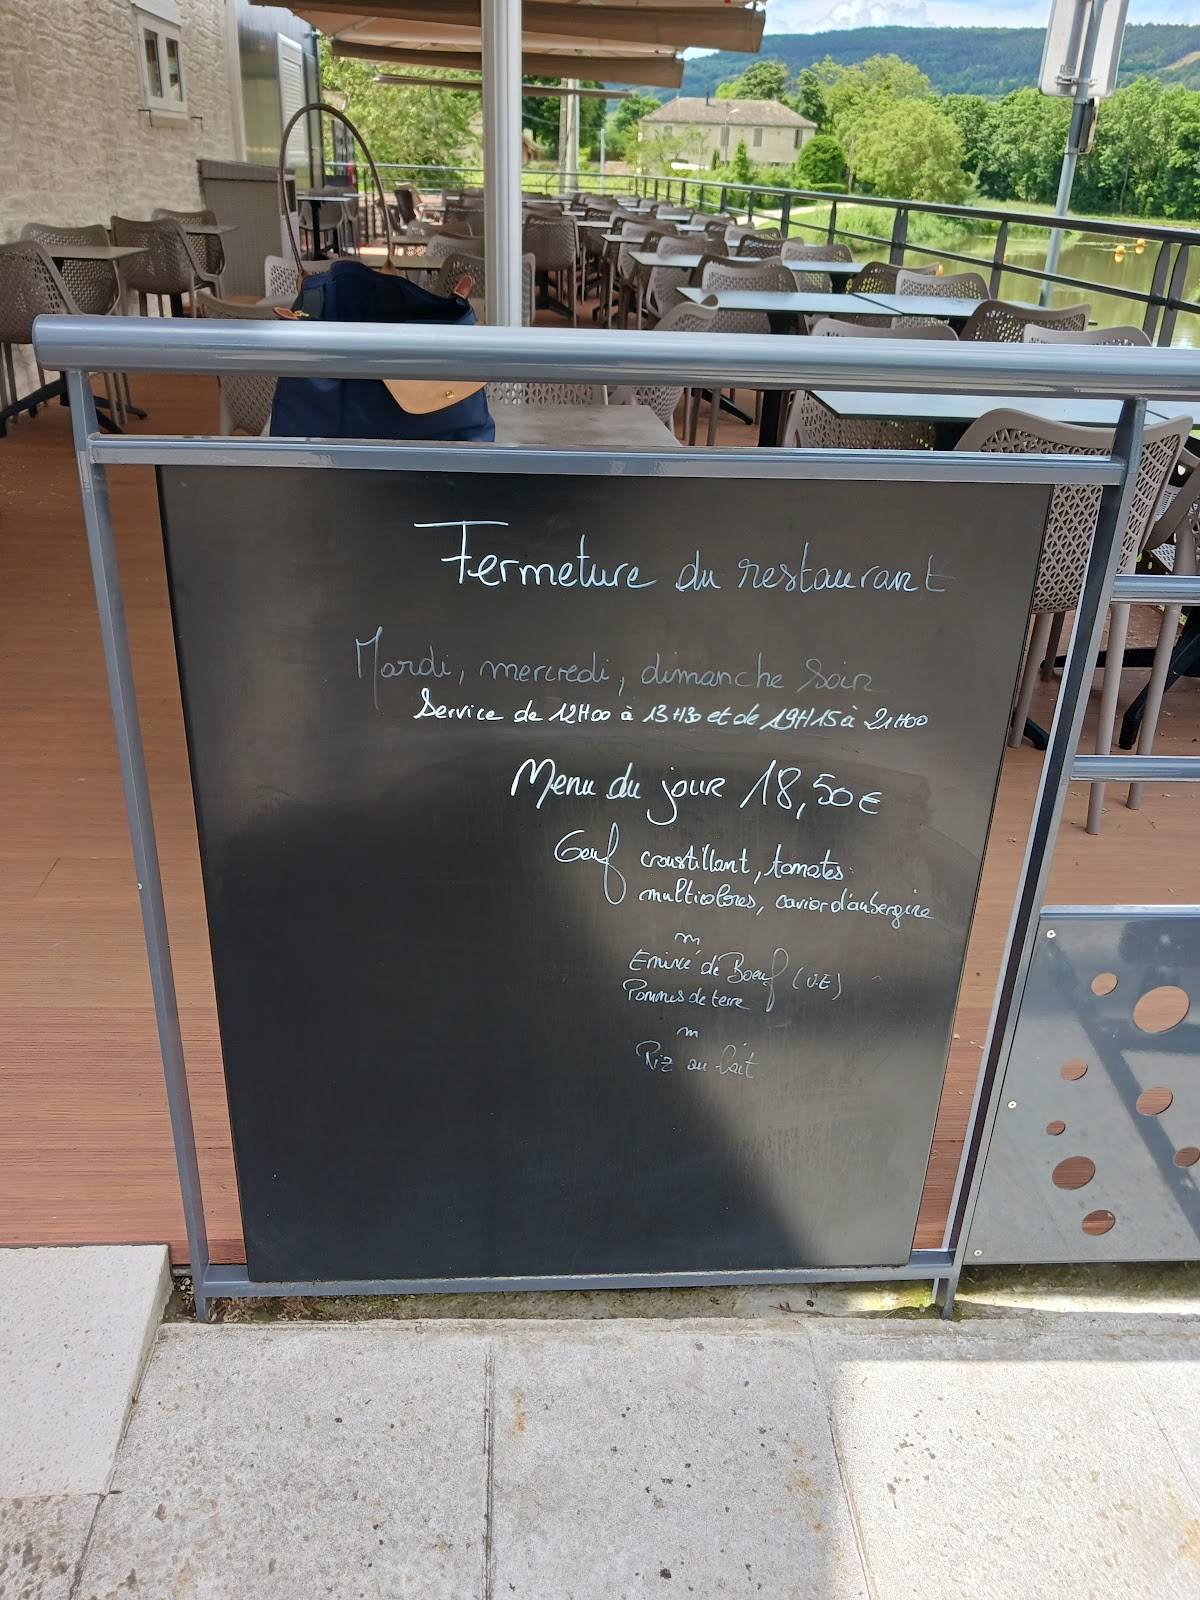 Fermeture du restaurant
Mardi, mercredi, dimanche soir
Service de 12H00 à 13H30 et de 19H15 à 21H00
Menu du jour 18,50€
Oeuf croustillant, tomates
multicolores, caviar d'aubergine
Emincé de Boeuf (U.E)
Pommes de terre
Riz au lait